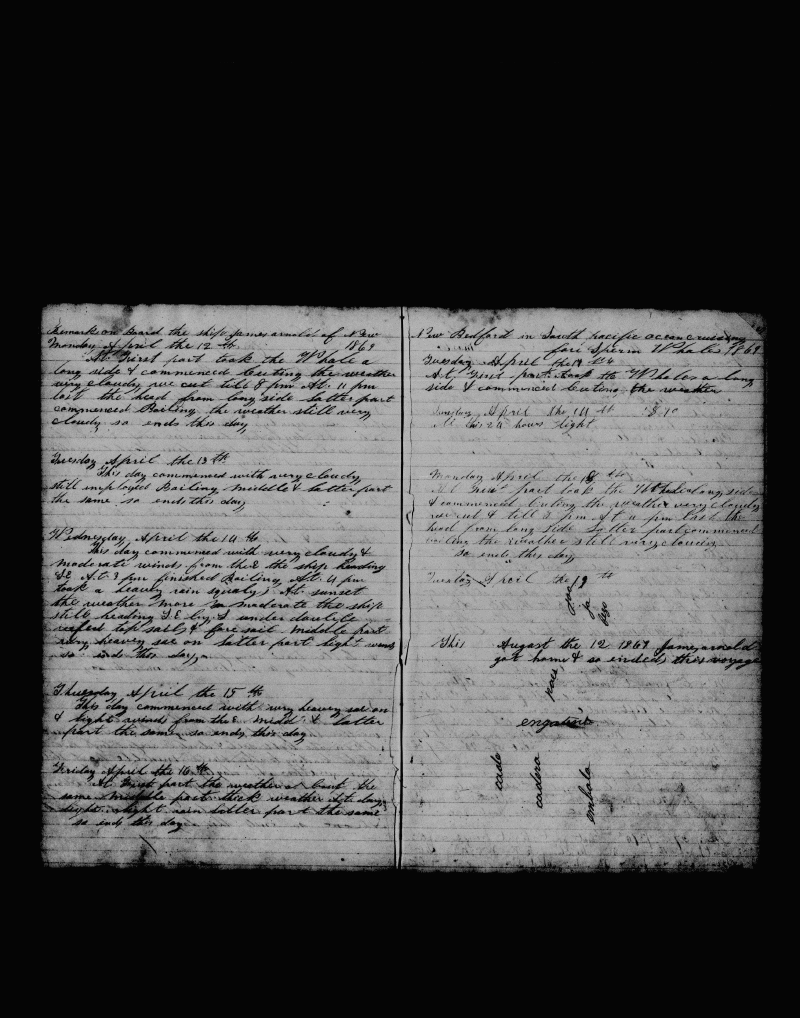 Remarks on Board the ship James arnold of New
Monday April the 12 th 1869
At First part took the Whale a
long side & commenced Cuting the weather
very cloudy we cut till 8 pm At 11 pm
lost the head from long side latter part
commenced Boiling the weather still very
cloudy so ends this day
Tuesday April the 13 th
This day commenced with very cloudy
still imployed Boiling middle & latter part
the same so ends this day
Wednesday April the 14 th
This day commenced with very cloudy &
moderate winds from the E the ship heading
SE At 3 pm finished Boiling At 4 pm
took a heavy rain squaly At sunset
the weather more so moderate the ship
still heading S.E by S under
reefed top sails & fore sail middle part
very heavy sea on latter part light winds
so ends this day
Thursday April the 15 th
This day commenced with very heavy sea on
& light winds from the E midd & latter
part the same so ends this day
Friday April the 16 th
At First part the weather the
same middle part thick weather
light rain latter part the same
so ends this day
New Bedford in South pacific ocean cruising
fori Sperm Whales 1869
Tuesday April the
At First part took the Whales a long
side & commenced Cuting the weather
April the 14 th
At this 24 hours light
Monday April the th
At First part took the Whale along side
& commenced Cuting the weather very cloudy
we cut till 8 pm At 11 pm Last the
head from long side Latter part commenced
boiling the weather still very cloudy
so ends this day
Tuesday April the 19 th
This August the 12 1869 James arnold
got home & so ended this voyage